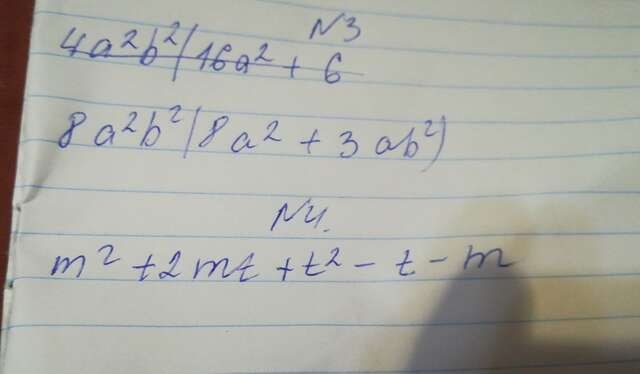 N3
4a²b²(16a² + 6
8a²b²(8a² + 3ab²)
N4.
m² + 2mt + t² - t - m